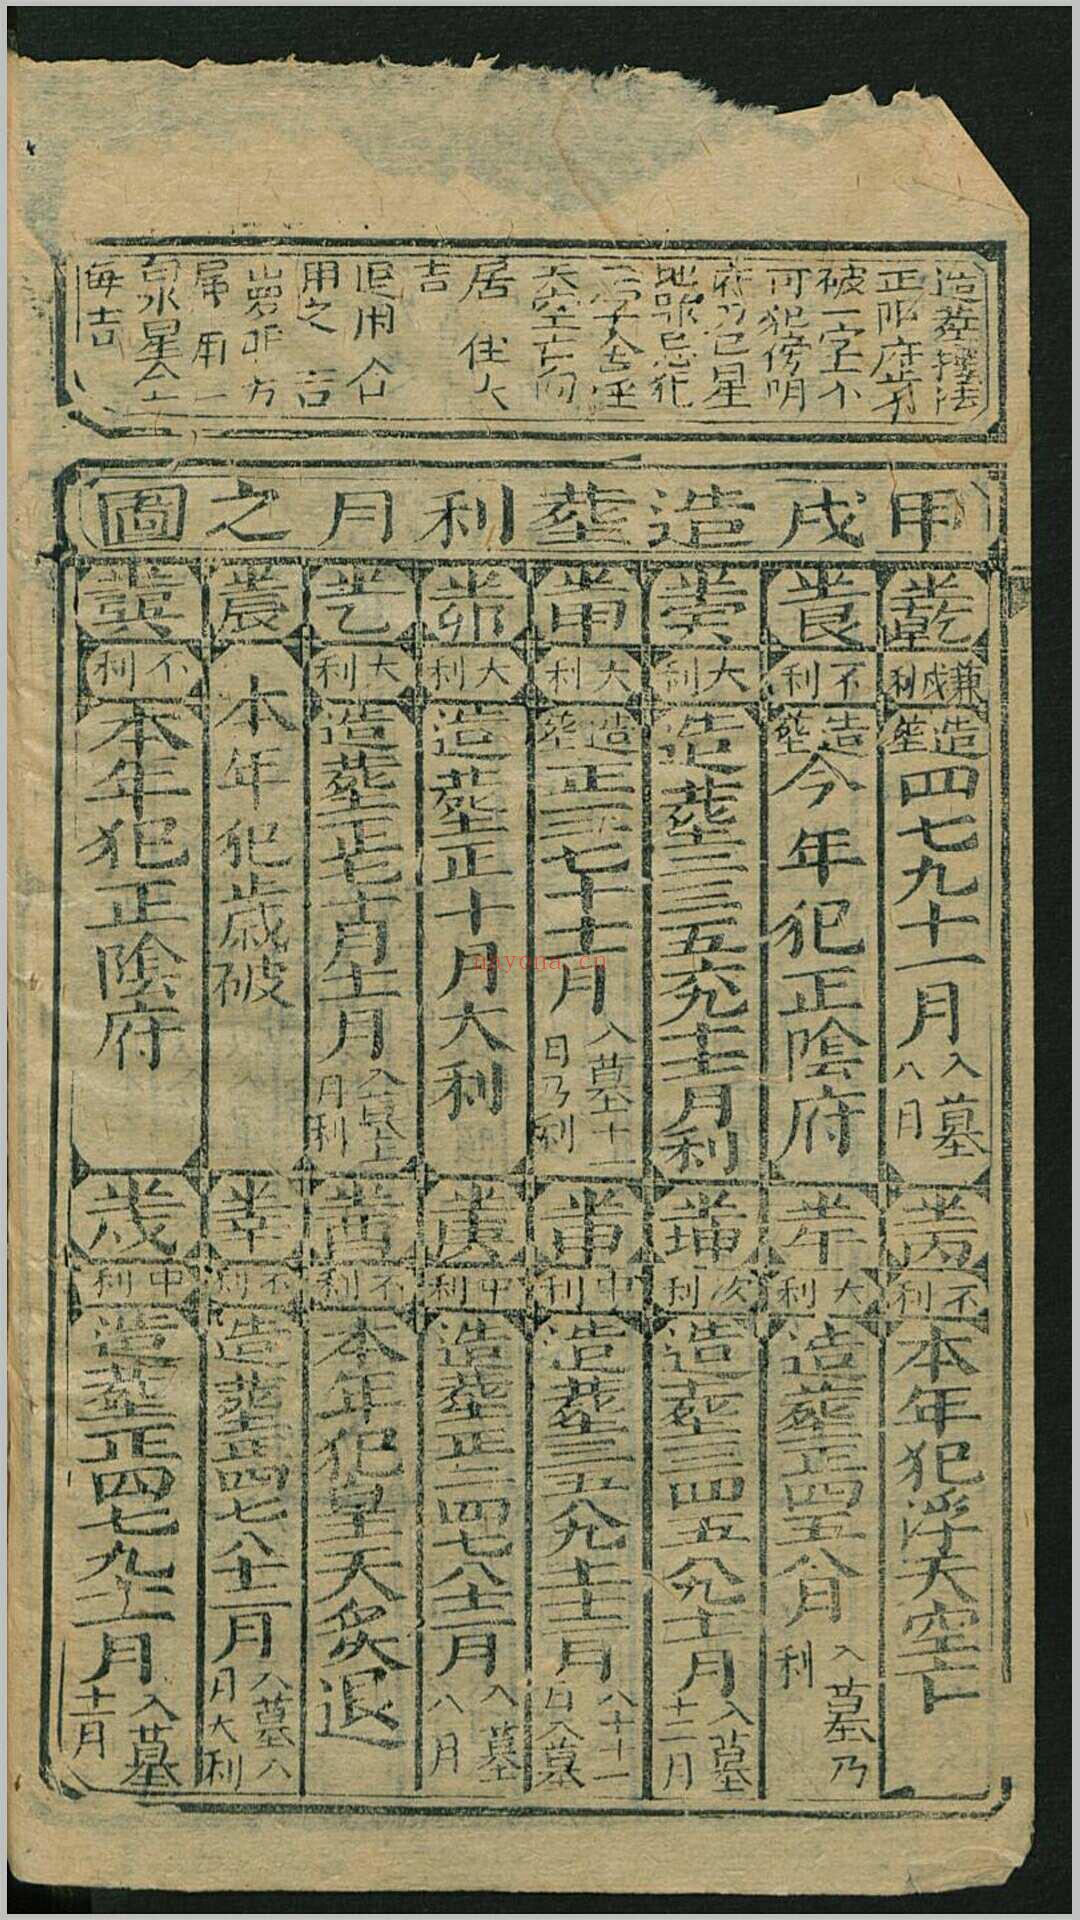 造葬擇法
正陰府月
破一字上不
可犯傍明
府乃已星
地號忌犯
天空亡向
居住大
吉
用之吉
每吉
甲戌造葬利月之圖
乾
兼戌利
造葬四七九十一月入墓八月
艮
不利
造葬今年犯正陰府
癸
大利
造葬二三五六九十二月利
甲
大利
造葬正二七十十二月入墓十一日乃利
卯
大利
造葬正十月大利
乙
大利
造葬正七十月十二月
辰
本年犯歲破
巽
不利
本年犯正陰府
丙
不利
本年犯浮天空亡
午
大利
造葬正四五八月入墓乃利
坤
次利
造葬三四五八九十一月入墓十二月
申
中利
造葬三五八九十二月
庚
中利
造葬正二四七八十二月入墓八月
酉
不利
本年犯皇天炙退
辛
不利
造葬正四七八十二月入墓八月大利
戌
中利
造葬正四七九十二月入墓十一月
nayona.cn